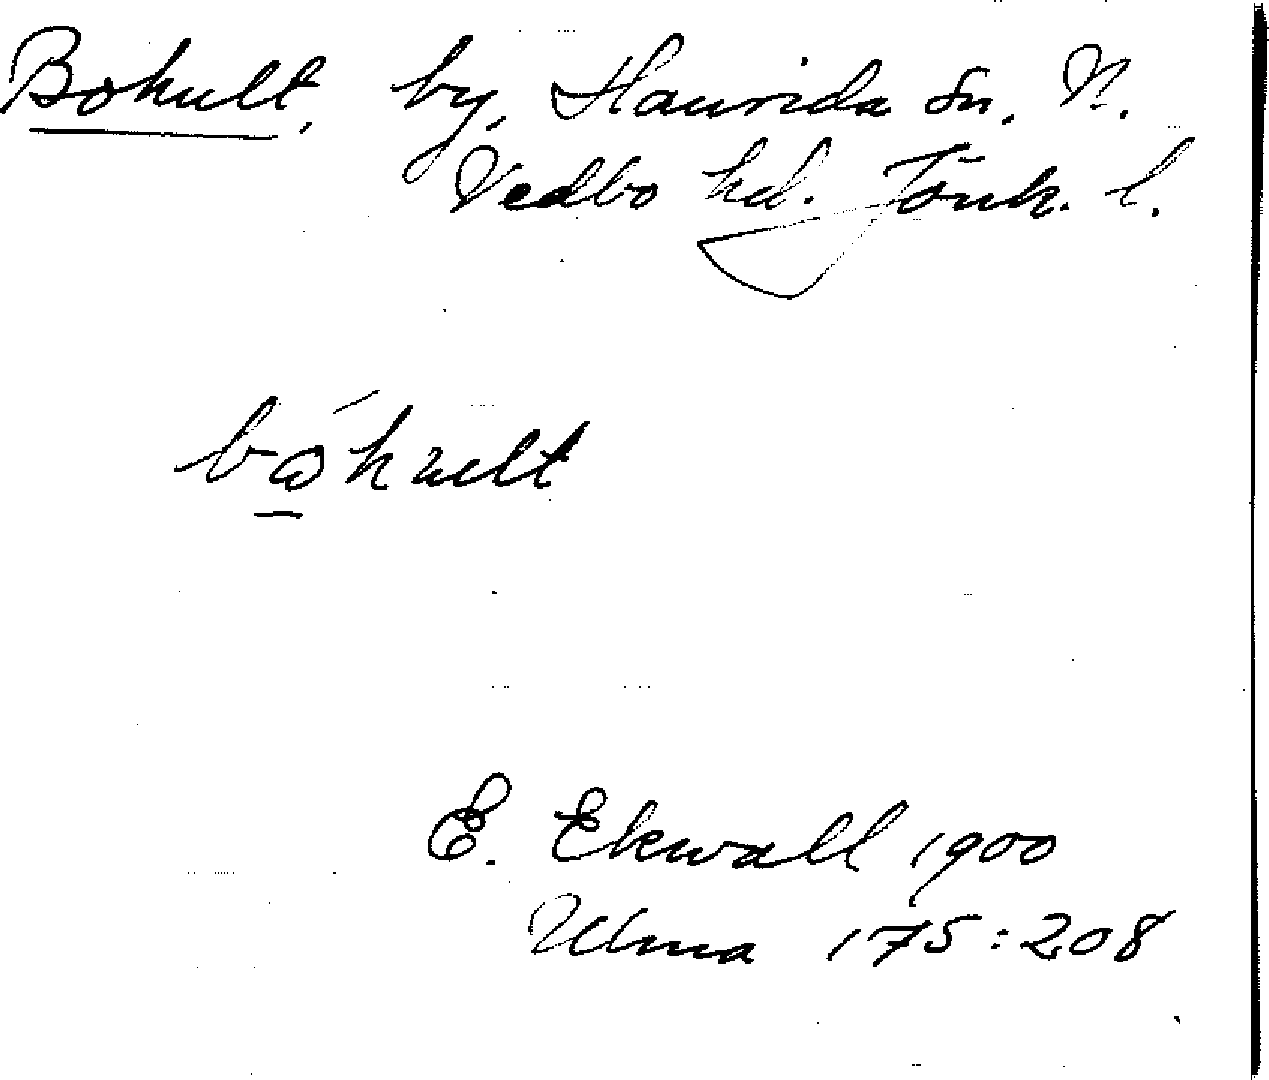 Bohult, by, Haurida sn, N.
Vedbo hd. Jönk. l.
bώhult
E. Ekwall 1900
Ulma 175:208